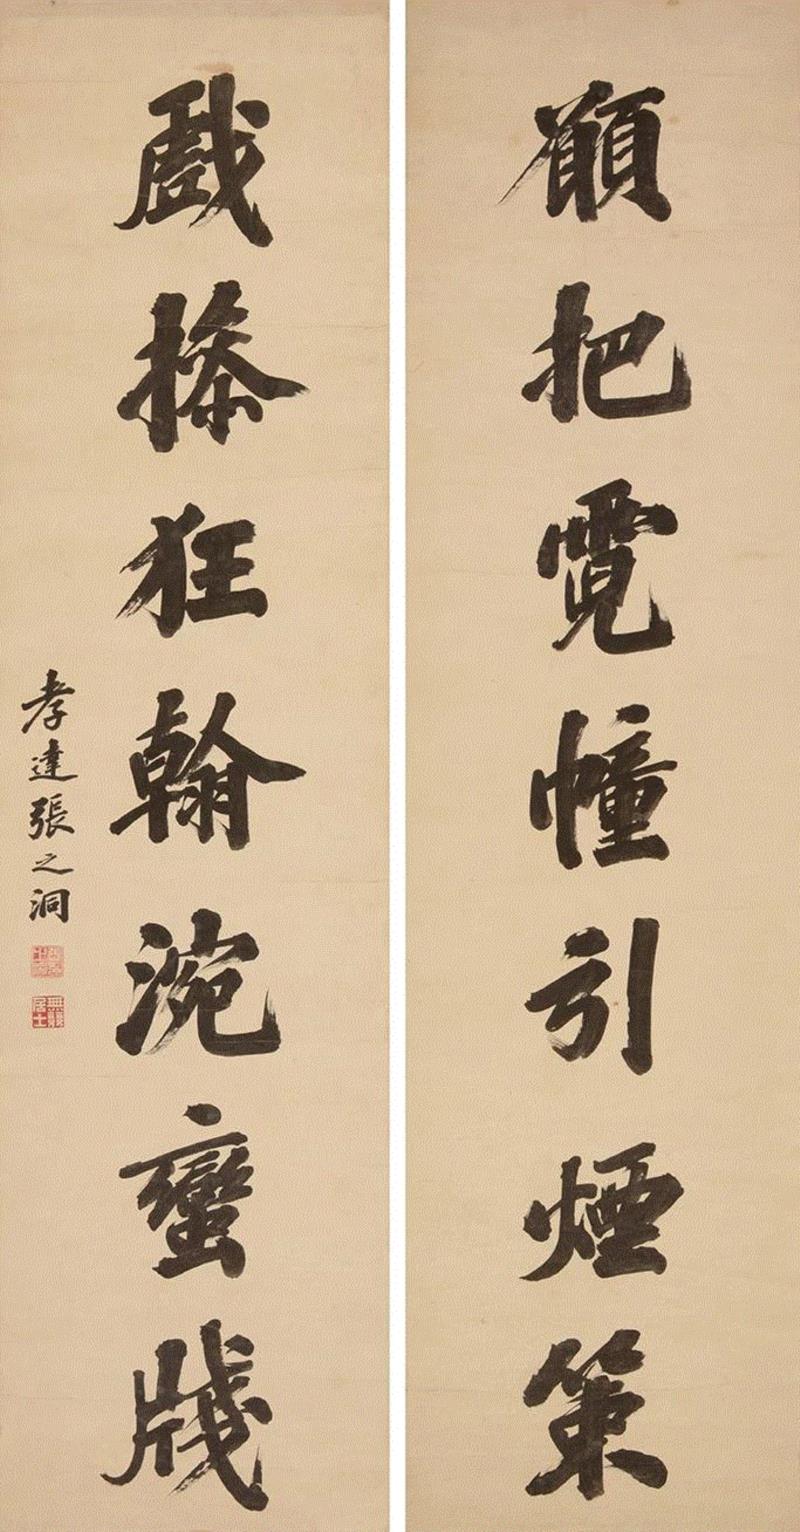 願把霓幢引煙策
戲搽狂翰涴蠻牋
孝達張之洞
無競居士